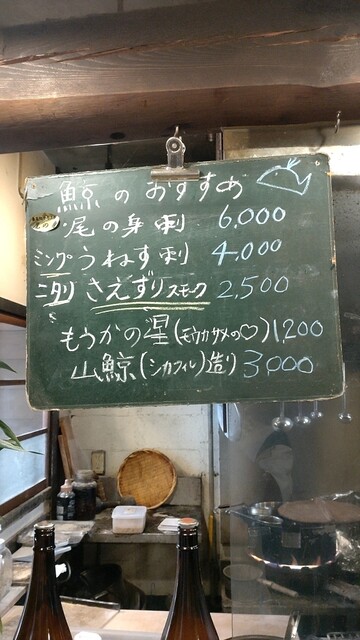 鯨のおすすめ
尾の身刺 6,000
ミンク うねす刺 4,000
ニタリ さえずりスモーク 2,500
もうかの星(モウカサメの♡) 1,200
山鯨(シカフィレ)造り 3000